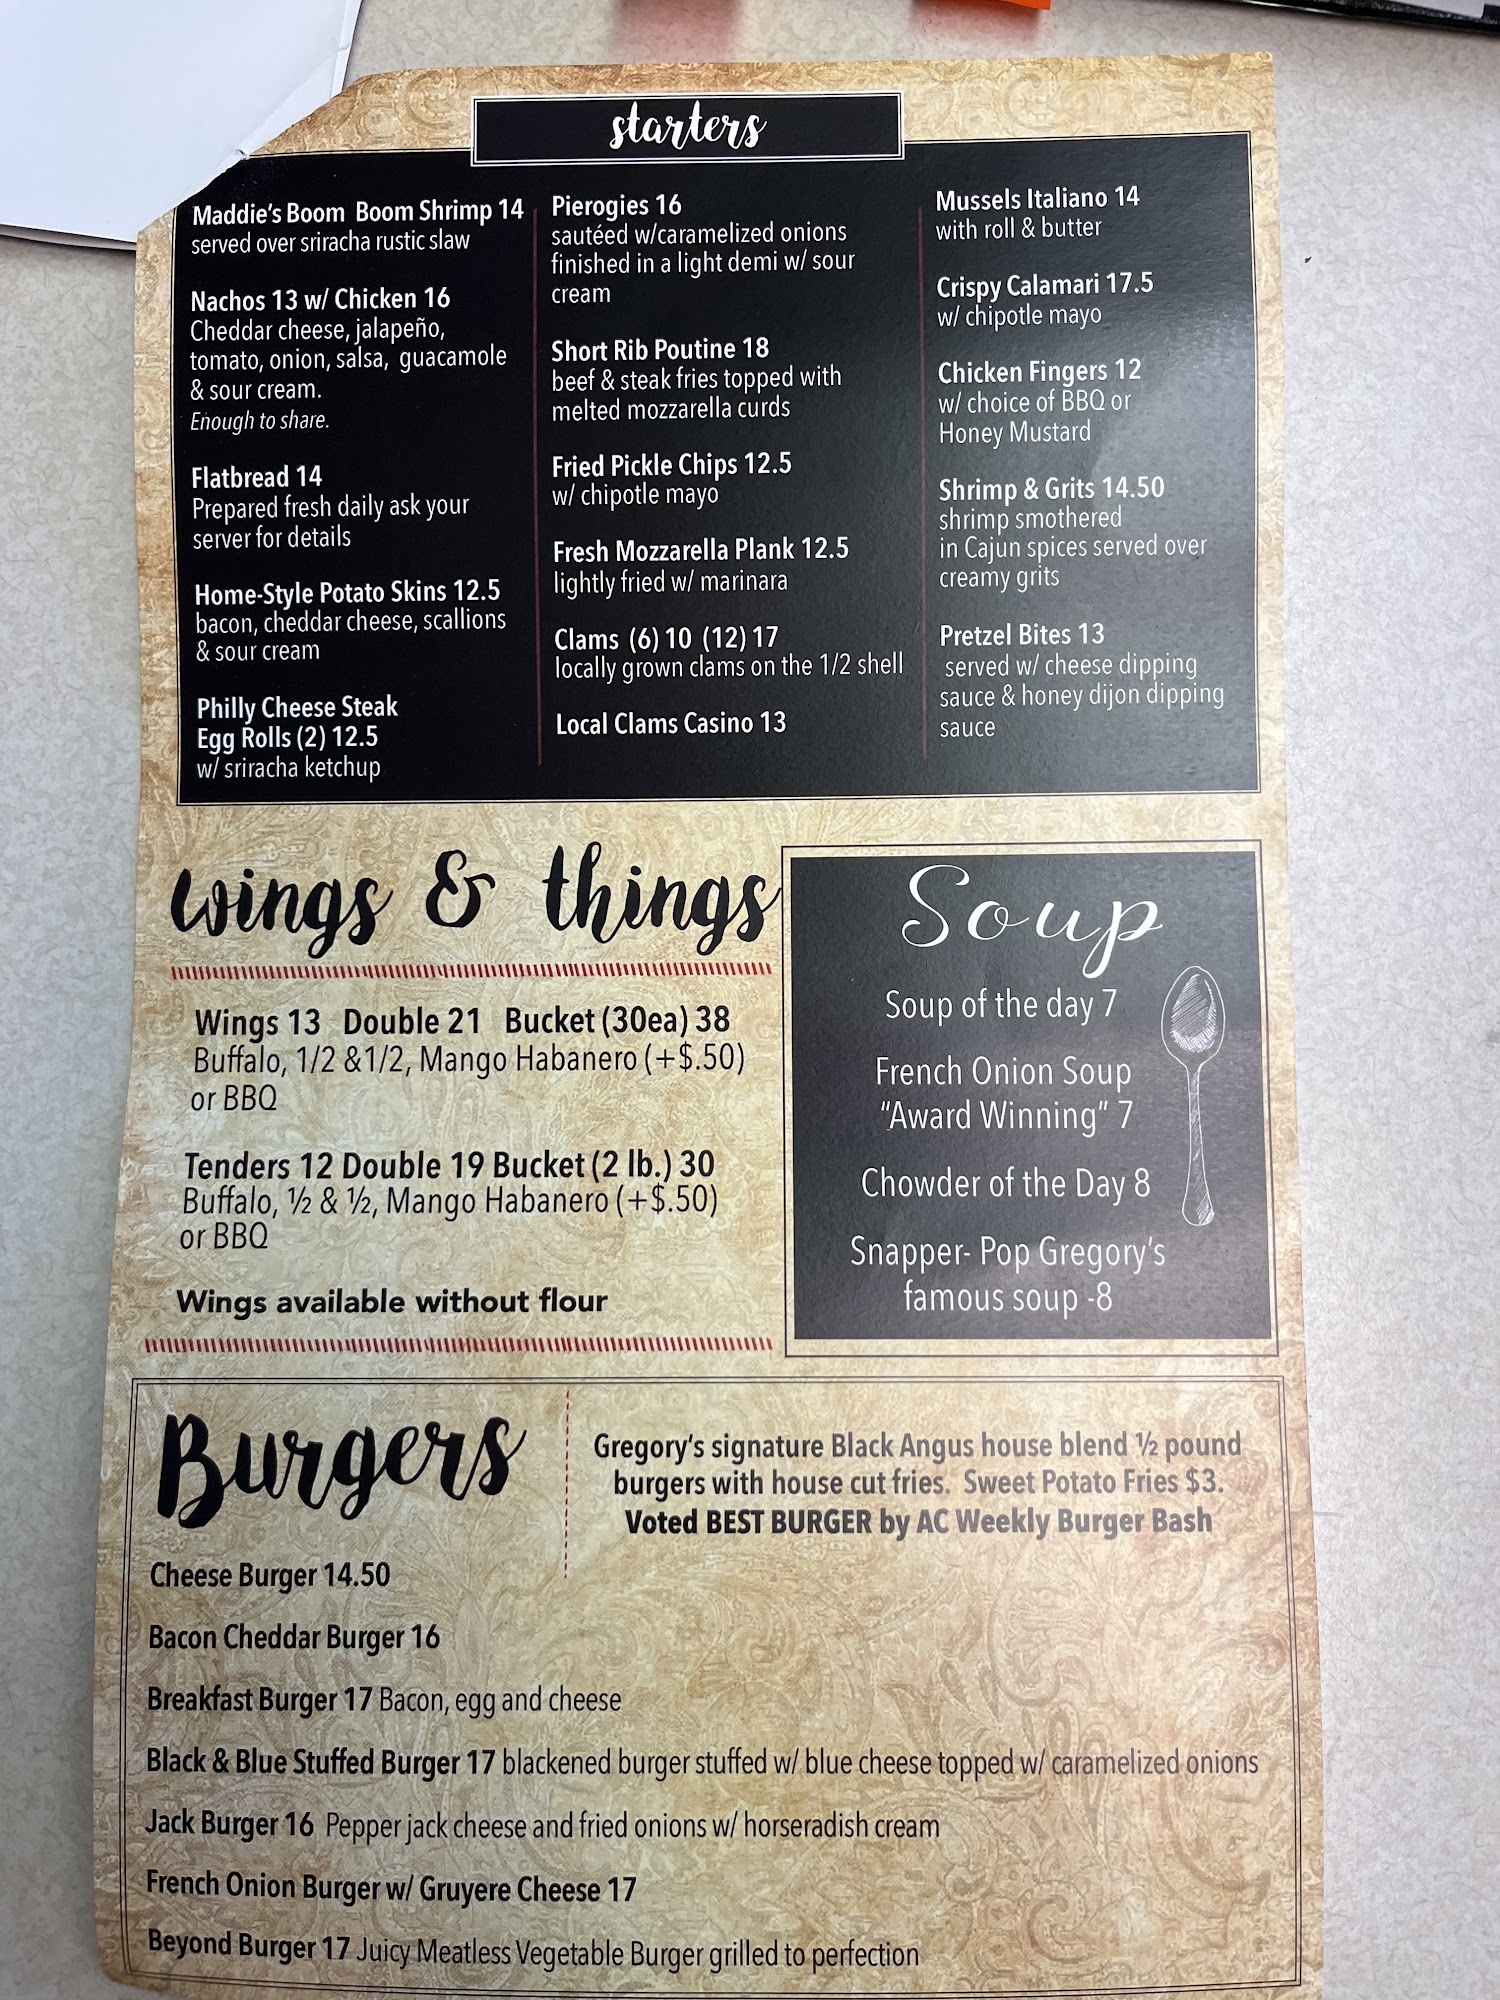 starters
Maddie's Boom Boom Shrimp 14
served over sriracha rustic slaw
Nachos 13 w/ Chicken 16
Cheddar cheese, jalapeño,
tomato, onion, salsa, guacamole
& sour cream.
Enough to share.
Flatbread 14
Prepared fresh daily ask your
server for details
Home-Style Potato Skins 12.5
bacon, cheddar cheese, scallions
& sour cream
Philly Cheese Steak
Egg Rolls (2) 12.5
w/ sriracha ketchup
Pierogies 16
sautéed w/caramelized onions
finished in a light demi w/ sour
cream
Short Rib Poutine 18
beef & steak fries topped with
melted mozzarella curds
Fried Pickle Chips 12.5
w/ chipotle mayo
Fresh Mozzarella Plank 12.5
lightly fried w/ marinara
Clams (6) 10 (12) 17
locally grown clams on the 1/2 shell
Local Clams Casino 13
Mussels Italiano 14
with roll & butter
Crispy Calamari 17.5
w/ chipotle mayo
Chicken Fingers 12
w/ choice of BBQ or
Honey Mustard
Shrimp & Grits 14.50
shrimp smothered
in Cajun spices served over
creamy grits
Pretzel Bites 13
served w/ cheese dipping
sauce & honey dijon dipping
sauce
wings & things
Wings 13 Double 21 Bucket (30ea) 38
Buffalo, 1/2 &1/2, Mango Habanero (+$.50)
or BBQ
Tenders 12 Double 19 Bucket (2 lb.) 30
Buffalo, ½ & ½, Mango Habanero (+$.50)
or BBQ
Wings available without flour
Soup
Soup of the day 7
French Onion Soup
"Award Winning" 7
Chowder of the Day 8
Snapper- Pop Gregory's
famous soup -8
Burgers
Gregory's signature Black Angus house blend ½ pound
burgers with house cut fries. Sweet Potato Fries $3.
Voted BEST BURGER by AC Weekly Burger Bash
Cheese Burger 14.50
Bacon Cheddar Burger 16
Breakfast Burger 17 Bacon, egg and cheese
Black & Blue Stuffed Burger 17 blackened burger stuffed w/ blue cheese topped w/ caramelized onions
Jack Burger 16 Pepper jack cheese and fried onions w/ horseradish cream
French Onion Burger w/ Gruyere Cheese 17
Beyond Burger 17 Juicy Meatless Vegetable Burger grilled to perfection